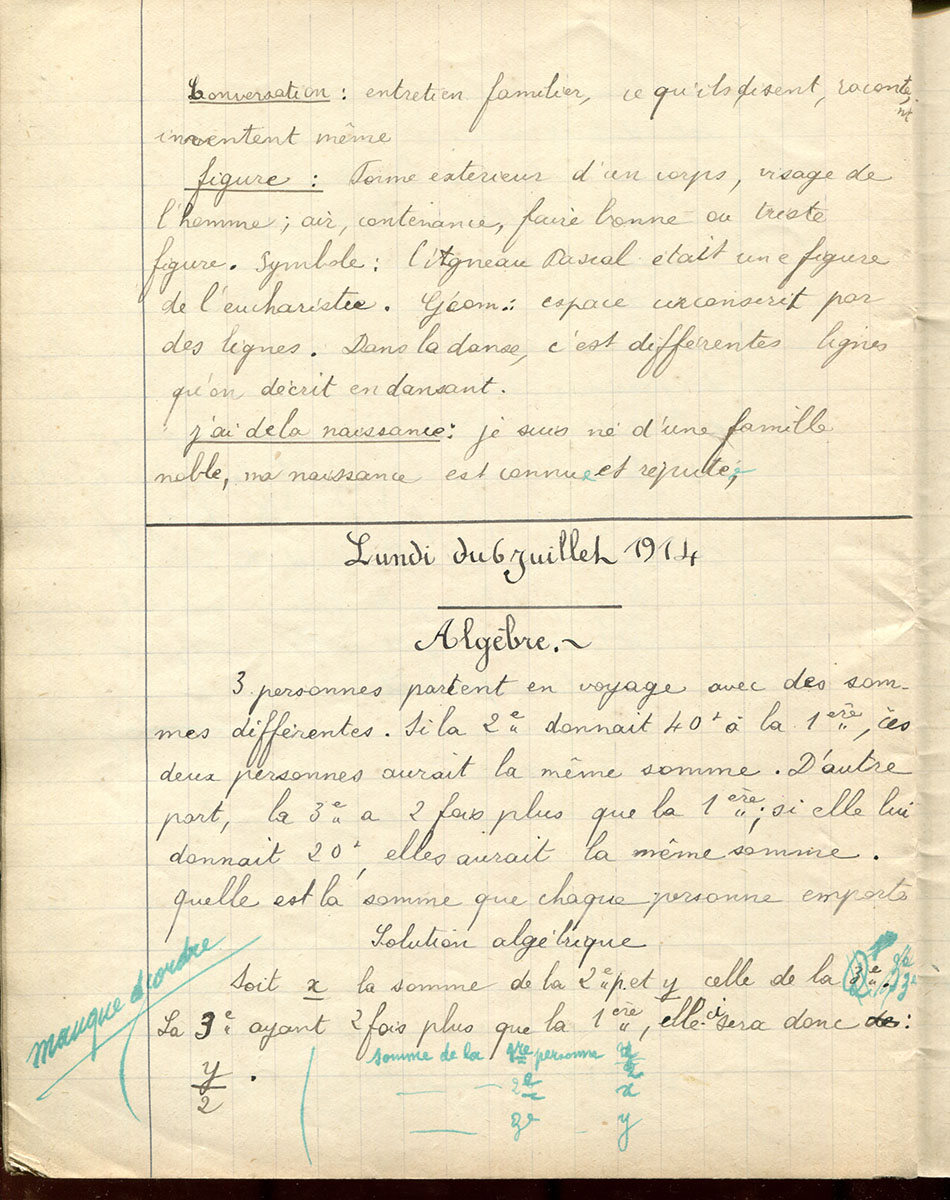 Conversation : entretien familier, ce qu'ils disent, racontent,
inventent même
figure : Forme exterieur d'un corps, visage de
l'homme ; air, contenance, faire bonne ou triste
figure. Symbole : l'Agneau Pascal était une figure
de l'eucharistie. Géom.: espace circonscrit par
des lignes. Dans la danse, c'est différentes lignes
qu'on décrit en dansant.
j'ai de la naissance : je suis né d'une famille
noble, ma naissance est connue et réputée,
Lundi du 6 Juillet 1914
Algèbre.~
3 personnes partent en voyage avec des som-
mes différentes. Si la 2e donnait 40f à la 1ère, ces
deux personnes aurait la même somme. D'autre
part, la 3e a 2 fois plus que la 1ère ; si elle lui
donnait 20f, elles aurait la même somme.
quelle est la somme que chaque personne emporte
Solution algébrique
Soit x la somme de la 2e p. et y celle de la 3e.
La 3e ayant 2 fois plus que la 1ère, elle-ci sera donc de :
manque d'ordre
y/2 .
somme de la 1re personne y/2
— — 2e x
— 3e y